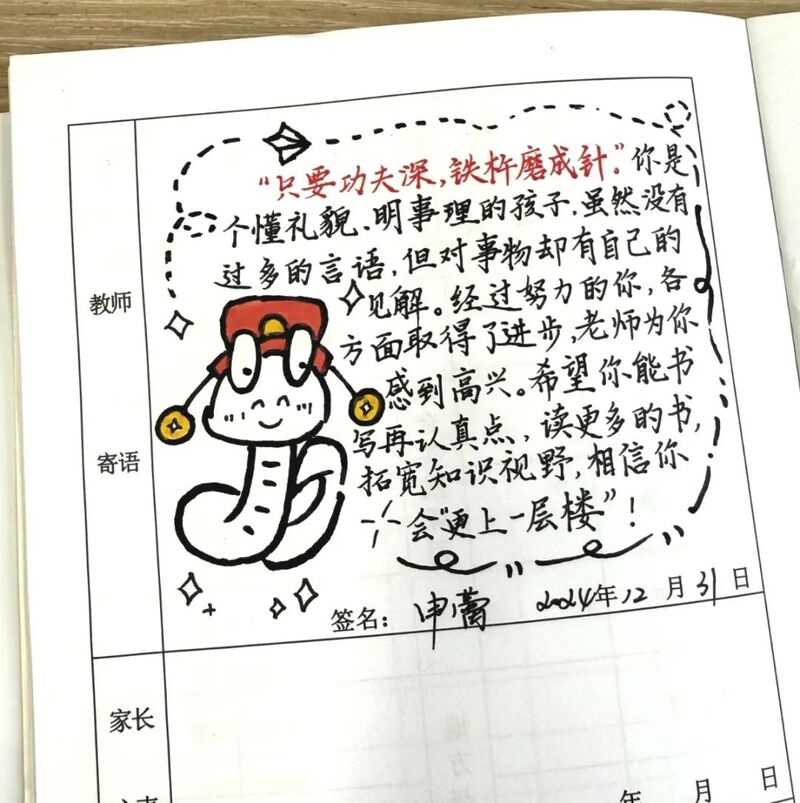 教师
寄语
“只要功夫深,铁杵磨成针。”你是
个懂礼貌、明事理的孩子,虽然没有
过多的言语,但对事物却有自己的
见解。经过努力的你,各
方面取得了进步,老师为你
感到高兴。希望你能书
写再认真点,读更多的书,
拓宽知识视野,相信你
会“更上一层楼”!
签名: 申蕾 2024年12月31日
家长
年 月 日